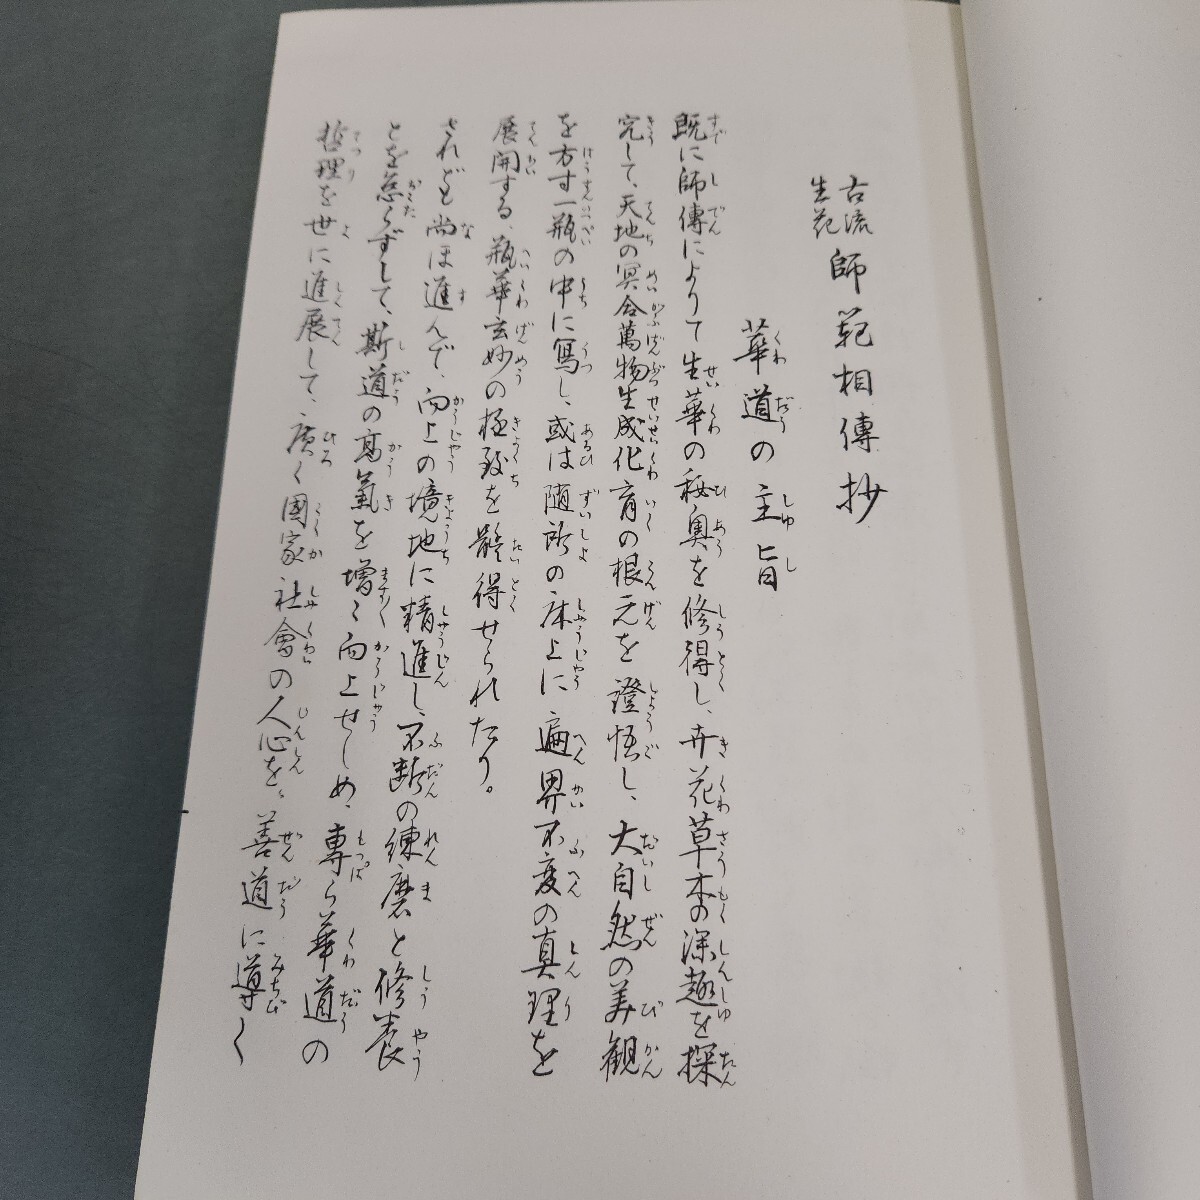 古流生花 師範相傳抄
華道の主旨
既に師傳によりて生華の秘奥を修得し、卉花草木の深趣を探
究して、天地の冥合萬物生成化育の根元を證悟し、大自然の美観
を方寸一瓶の中に寫し、或は随所の床上に遍界不変の真理を
展開する、瓶華玄妙の極致を體得せられたり。
されども尚ほ進んで、向上の境地に精進し、不断の練磨と修養
とを怠らずして、斯道の高氣を増々向上せしめ、専ら華道の
哲理を世に進展して、広く國家社會の人心を、善道に導く